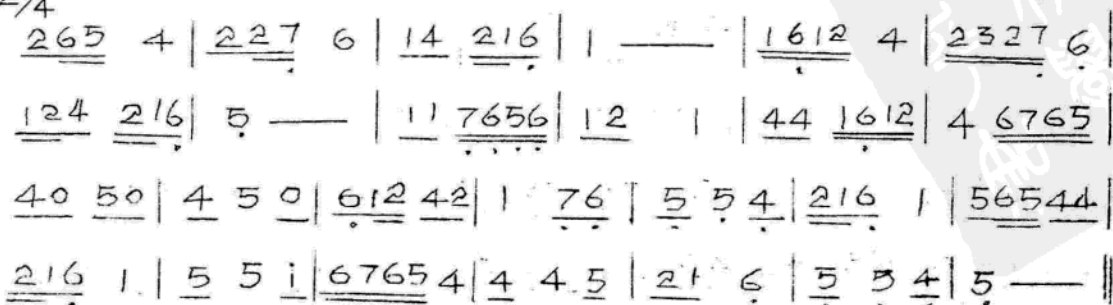 2/4
265 4 | 227 6 | 14 216 | 1 —— | 1612 4 | 2327 6 |
124 216 | 5 —— | 11 7656 | 12 1 | 44 1612 | 4 6765 |
40 50 | 4 5 0 | 612 42 | 1 76 | 5 5 4 | 216 1 | 565 44 |
216 1 | 5 5 i | 6765 4 | 4 4 5 | 21 6 | 5 5 4 | 5 —— ‖